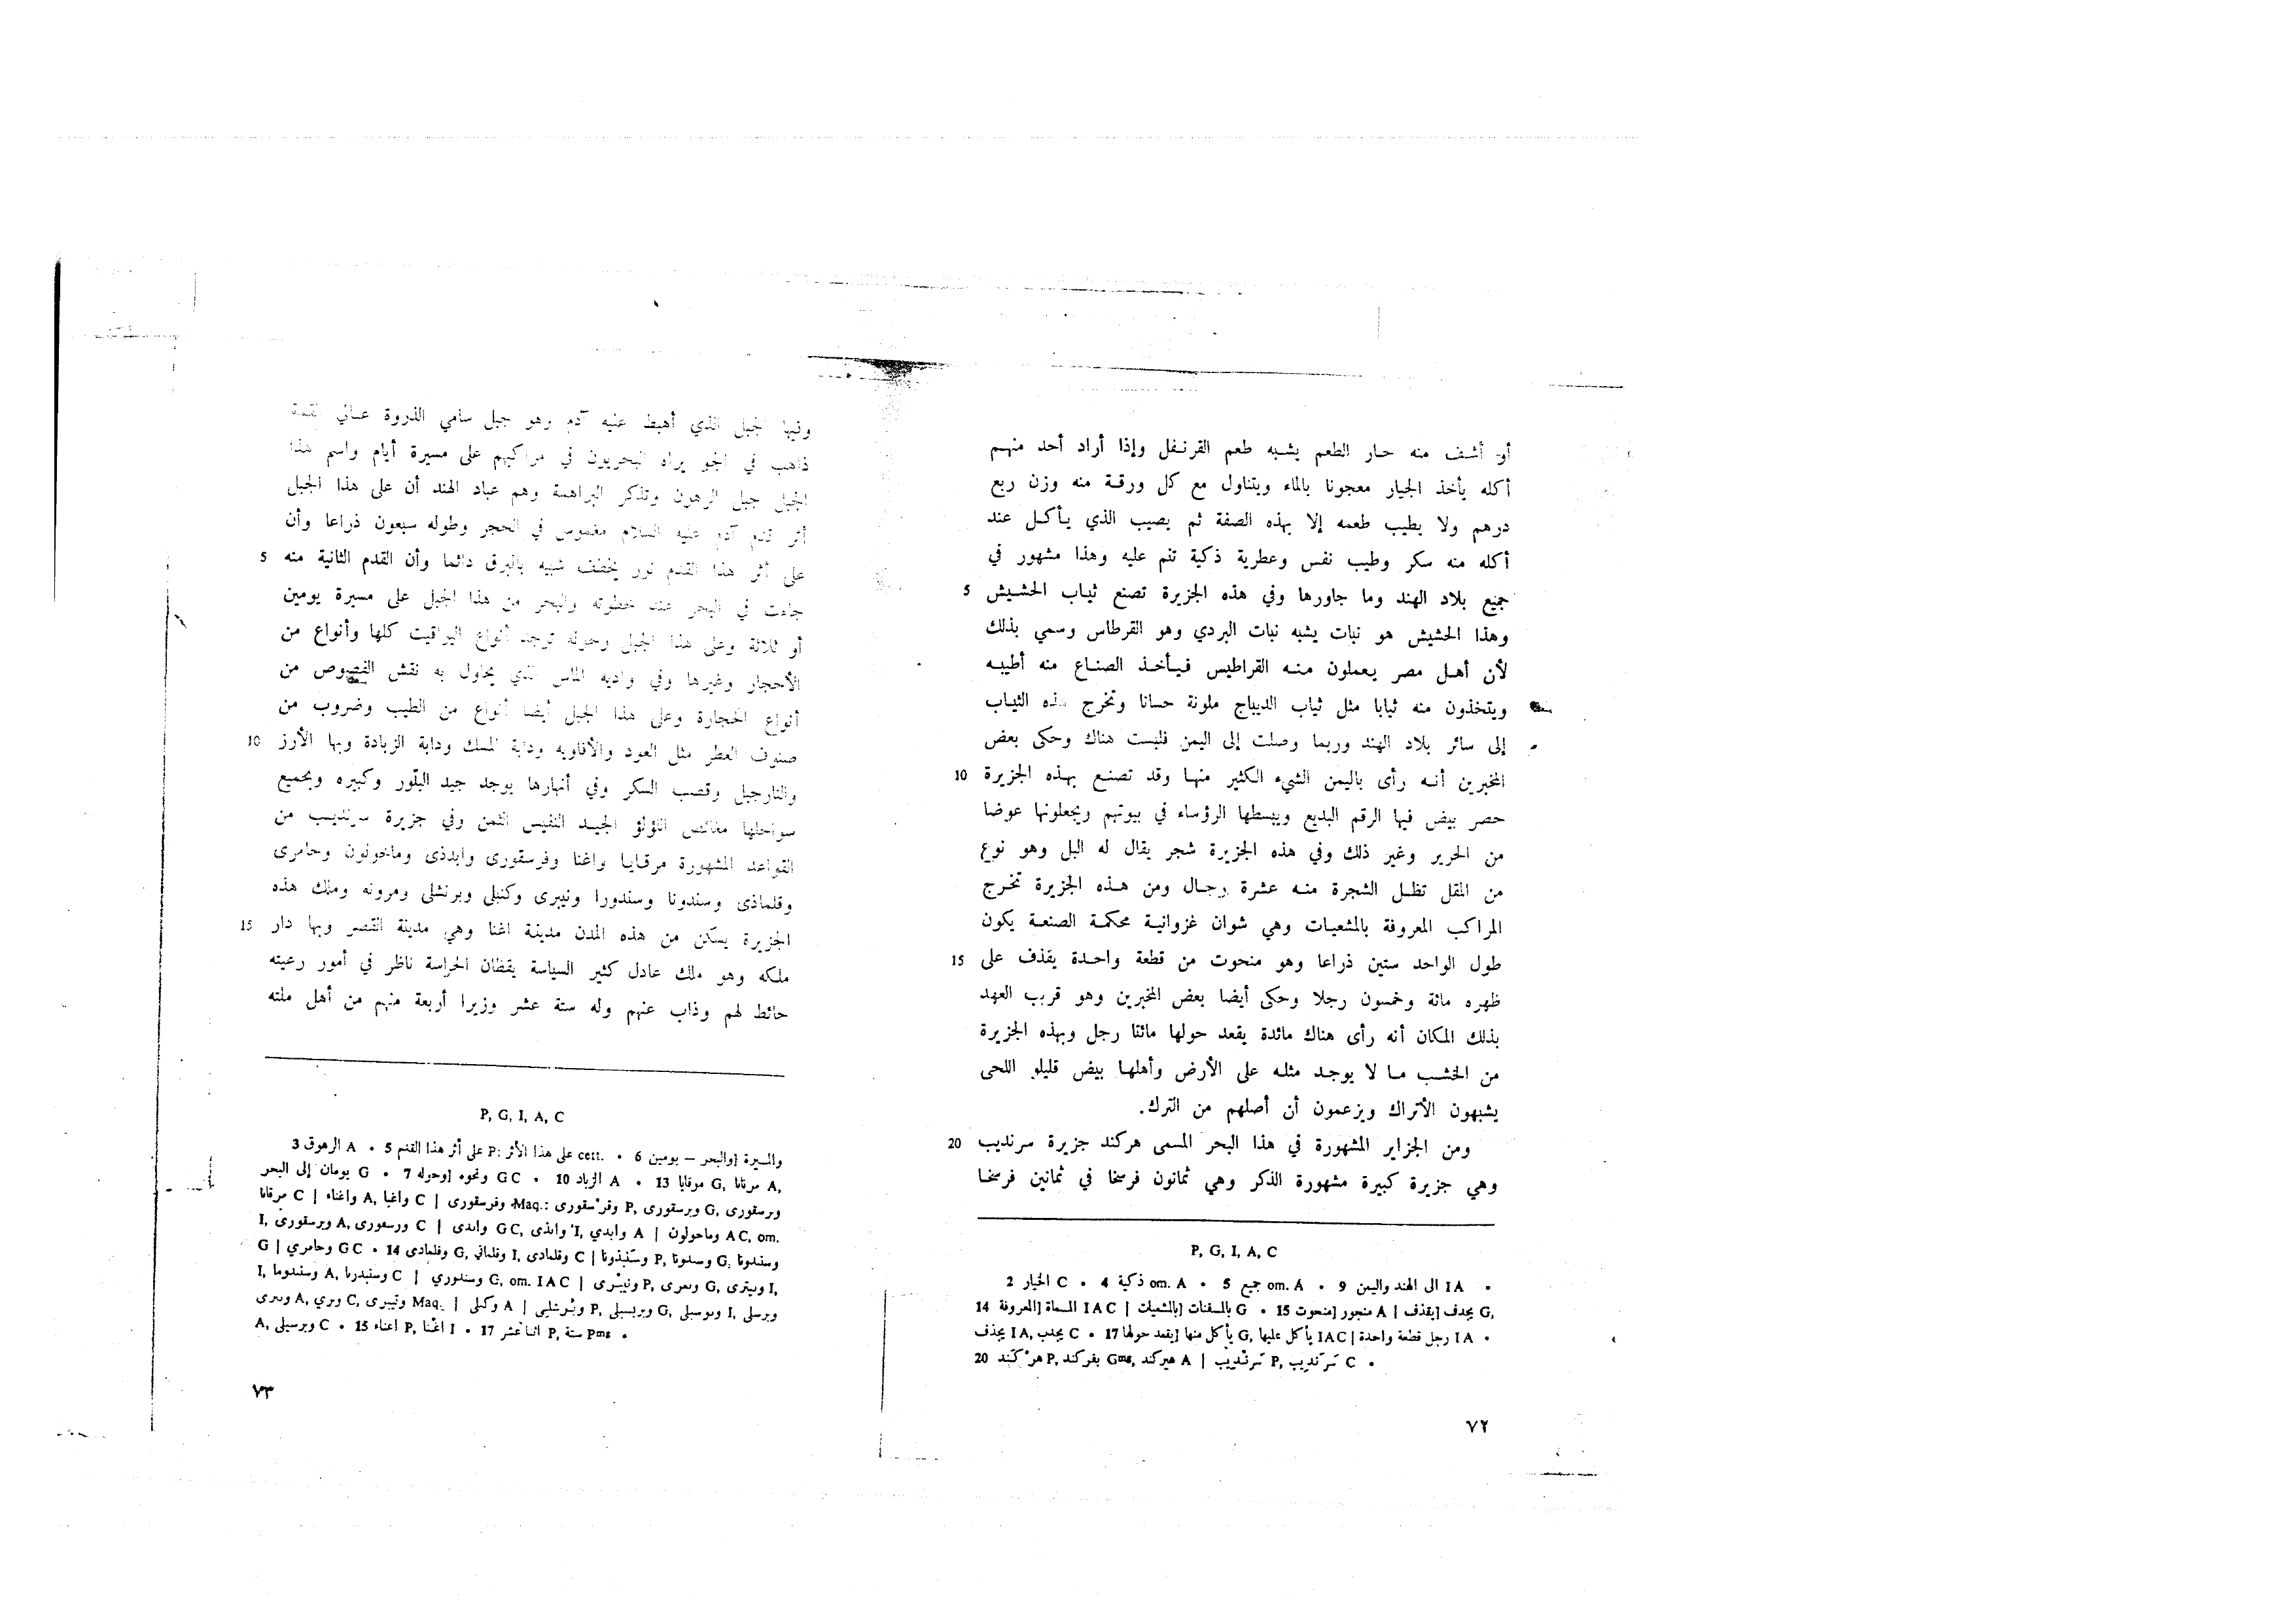 أو أشف منه حار الطعم يشبه طعم القرنفل وإذا أراد أحد منهم
أكله يأخذ الجيار معجونا بالماء ويتناول مع كل ورقة منه وزن ربع
درهم ولا يطيب طعمه إلا بهذه الصفة ثم يصيب الذي يأكل عند
أكله منه سكر وطيب نفس وعطرية ذكية تنم عليه وهذا مشهور في
جميع بلاد الهند وما جاورها وفي هذه الجزيرة تصنع ثياب الحشيش 5
وهذا الحشيش هو نبات يشبه نبات البردي وهو القرطاس وسمي بذلك
لأن أهل مصر يعملون منه القراطيس فيأخذ الصناع منه أطيبه
ويتخذون منه ثيابا مثل ثياب الديباج ملونة حسانا وتخرج هذه الثياب
إلى سائر بلاد الهند وربما وصلت إلى اليمن فلبست هناك وحكى بعض
المخبرين أنه رأى باليمن الشيء الكثير منها وقد تصنع بهذه الجزيرة 10
حصر بيض فيها الرقم البديع ويبسطها الرؤساء في بيوتهم ويجعلونها عوضا
من الحرير وغير ذلك وفي هذه الجزيرة شجر يقال له البل وهو نوع
من المقل تظل الشجرة منه عشرة رجال ومن هذه الجزيرة تخرج
المراكب المعروفة بالمشعيات وهي شوان غزوانية محكمة الصنعة يكون
طول الواحد ستين ذراعا وهو منحوت من قطعة واحدة يقذف على 15
ظهره مائة وخمسون رجلا وحكى أيضا بعض المخبرين وهو قريب العهد
بذلك المكان أنه رأى هناك مائدة يقعد حولها مائتا رجل وبهذه الجزيرة
من الخشب ما لا يوجد مثله على الأرض وأهلها بيض قليلو اللحى
يشبهون الأتراك ويزعمون أن أصلهم من الترك.
ومن الجزاير المشهورة في هذا البحر المسمى هركند جزيرة سرنديب 20
وهي جزيرة كبيرة مشهورة الذكر وهي ثمانون فرسخا في ثمانين فرسخا
P, G, I, A, C
2 الخيار C • 4 ذكية om. A • 5 جميع om. A • 9 الى الهند واليمن I A •
14 المعروفة] المسماة I A C | بالمشعيات] بالسفنات G • 15 منحوت] منجور A | يقذف] يجدف G,
يجذف I A, يجدب C • 17 يقعد حولها] يأكل منها G, يأكل عليها I A C | رجل قطعة واحدة I A •
20 هركند P, بفركند Gmg, هيركند A | سرنديب P, سرنديب C •
٧٢
وفيها الجبل الذي أهبط عليه آدم وهو جبل سامي الذروة عالي القمة
ذاهب في الجو يراه البحريون في مراكبهم على مسيرة أيام واسم هذا
الجبل جبل الرهون وتذكر البراهمة وهم عباد الهند أن على هذا الجبل
أثر قدم آدم عليه السلام مغموس في الحجر وطوله سبعون ذراعا وأن
على أثر هذا القدم نور يخطف شبيه بالبرق دائما وأن القدم الثانية منه 5
جاءت في البحر عند خطوته والبحر من هذا الجبل على مسيرة يومين
أو ثلاثة وعلى هذا الجبل وحوله توجد أنواع اليواقيت كلها وأنواع من
الأحجار وغيرها وفي واديه الماس الذي يحاول به نقش الفصوص من
أنواع الحجارة وعلى هذا الجبل أيضا أنواع من الطيب وضروب من
صنوف العطر مثل العود والأفاويه ودابة المسك ودابة الزبادة وبها الأرز 10
والنارجيل وقصب السكر وفي أنهارها يوجد جيد البلّور وكبيره وبجميع
سواحلها مغائص اللؤلؤ الجيد النفيس الثمن وفي جزيرة سرنديب من
القواعد المشهورة مرقايا واغنا وفرسقورى وابدذى وماخولون وحامرى
وقلماذى وسندونا وسندورا وتيبرى وكنبلى وبرنشلى ومرونه وملك هذه
الجزيرة يسكن من هذه المدن مدينة اغنا وهي مدينة القصر وبها دار 15
ملكه وهو ملك عادل كثير السياسة يقظان الحراسة ناظر في أمور رعيته
حائط لهم وذاب عنهم وله ستة عشر وزيرا أربعة منهم من أهل ملته
P, G, I, A, C
3 الرهوق A • 5 على أثر هذا القدم P: على هذا الأثر cett. • 6 والبحر – يومين] والمسيرة
يومان إلى البحر G • 7 وحوله] ونحوه G C • 10 الزباد A • 13 موقايا G, مرتانا A,
٧٣